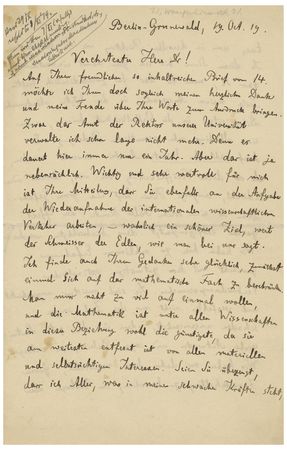 Berlin-Grunewald, 19. Oct. 19.
Verehrtester Herr Dr!
Auf Ihren freundlichen so inhaltreichen Brief vom 14.
möchte ich Ihnen doch sogleich meinen herzlichen Dank
und meine Freude über Ihre Worte zum Ausdruck bringen.
Zwar das Amt der Rektor unserer Universität
verwalte ich schon lange nicht mehr. Denn es
dauert hier immer nur ein Jahr. Aber das ist ja
nebensächlich. Wichtig und sehr wertvoll für mich
ist Ihre Mitteilung, dass Sie ebenfalls an der Aufgabe
der Wiederaufnahme der internationalen wissenschaftlichen
Verkehrs arbeiten, – wahrlich ein schönes Ziel, wert
des Schweisses der Edlen, wie man bei uns sagt.
Ich finde auch Ihren Gedanken sehr glücklich, zunächst
einmal sich auf das mathematische Fach zu beschränken.
Man muss nicht zu viel auf einmal wollen,
und die Mathematik ist unter allen Wissenschaften
in dieser Beziehung wohl die günstigste, da sie
am weitesten entfernt ist von allen materiellen
und selbstsüchtigen Interessen. Seien Sie überzeugt,
dass ich Alles, was in meinen schwachen Kräften steht,